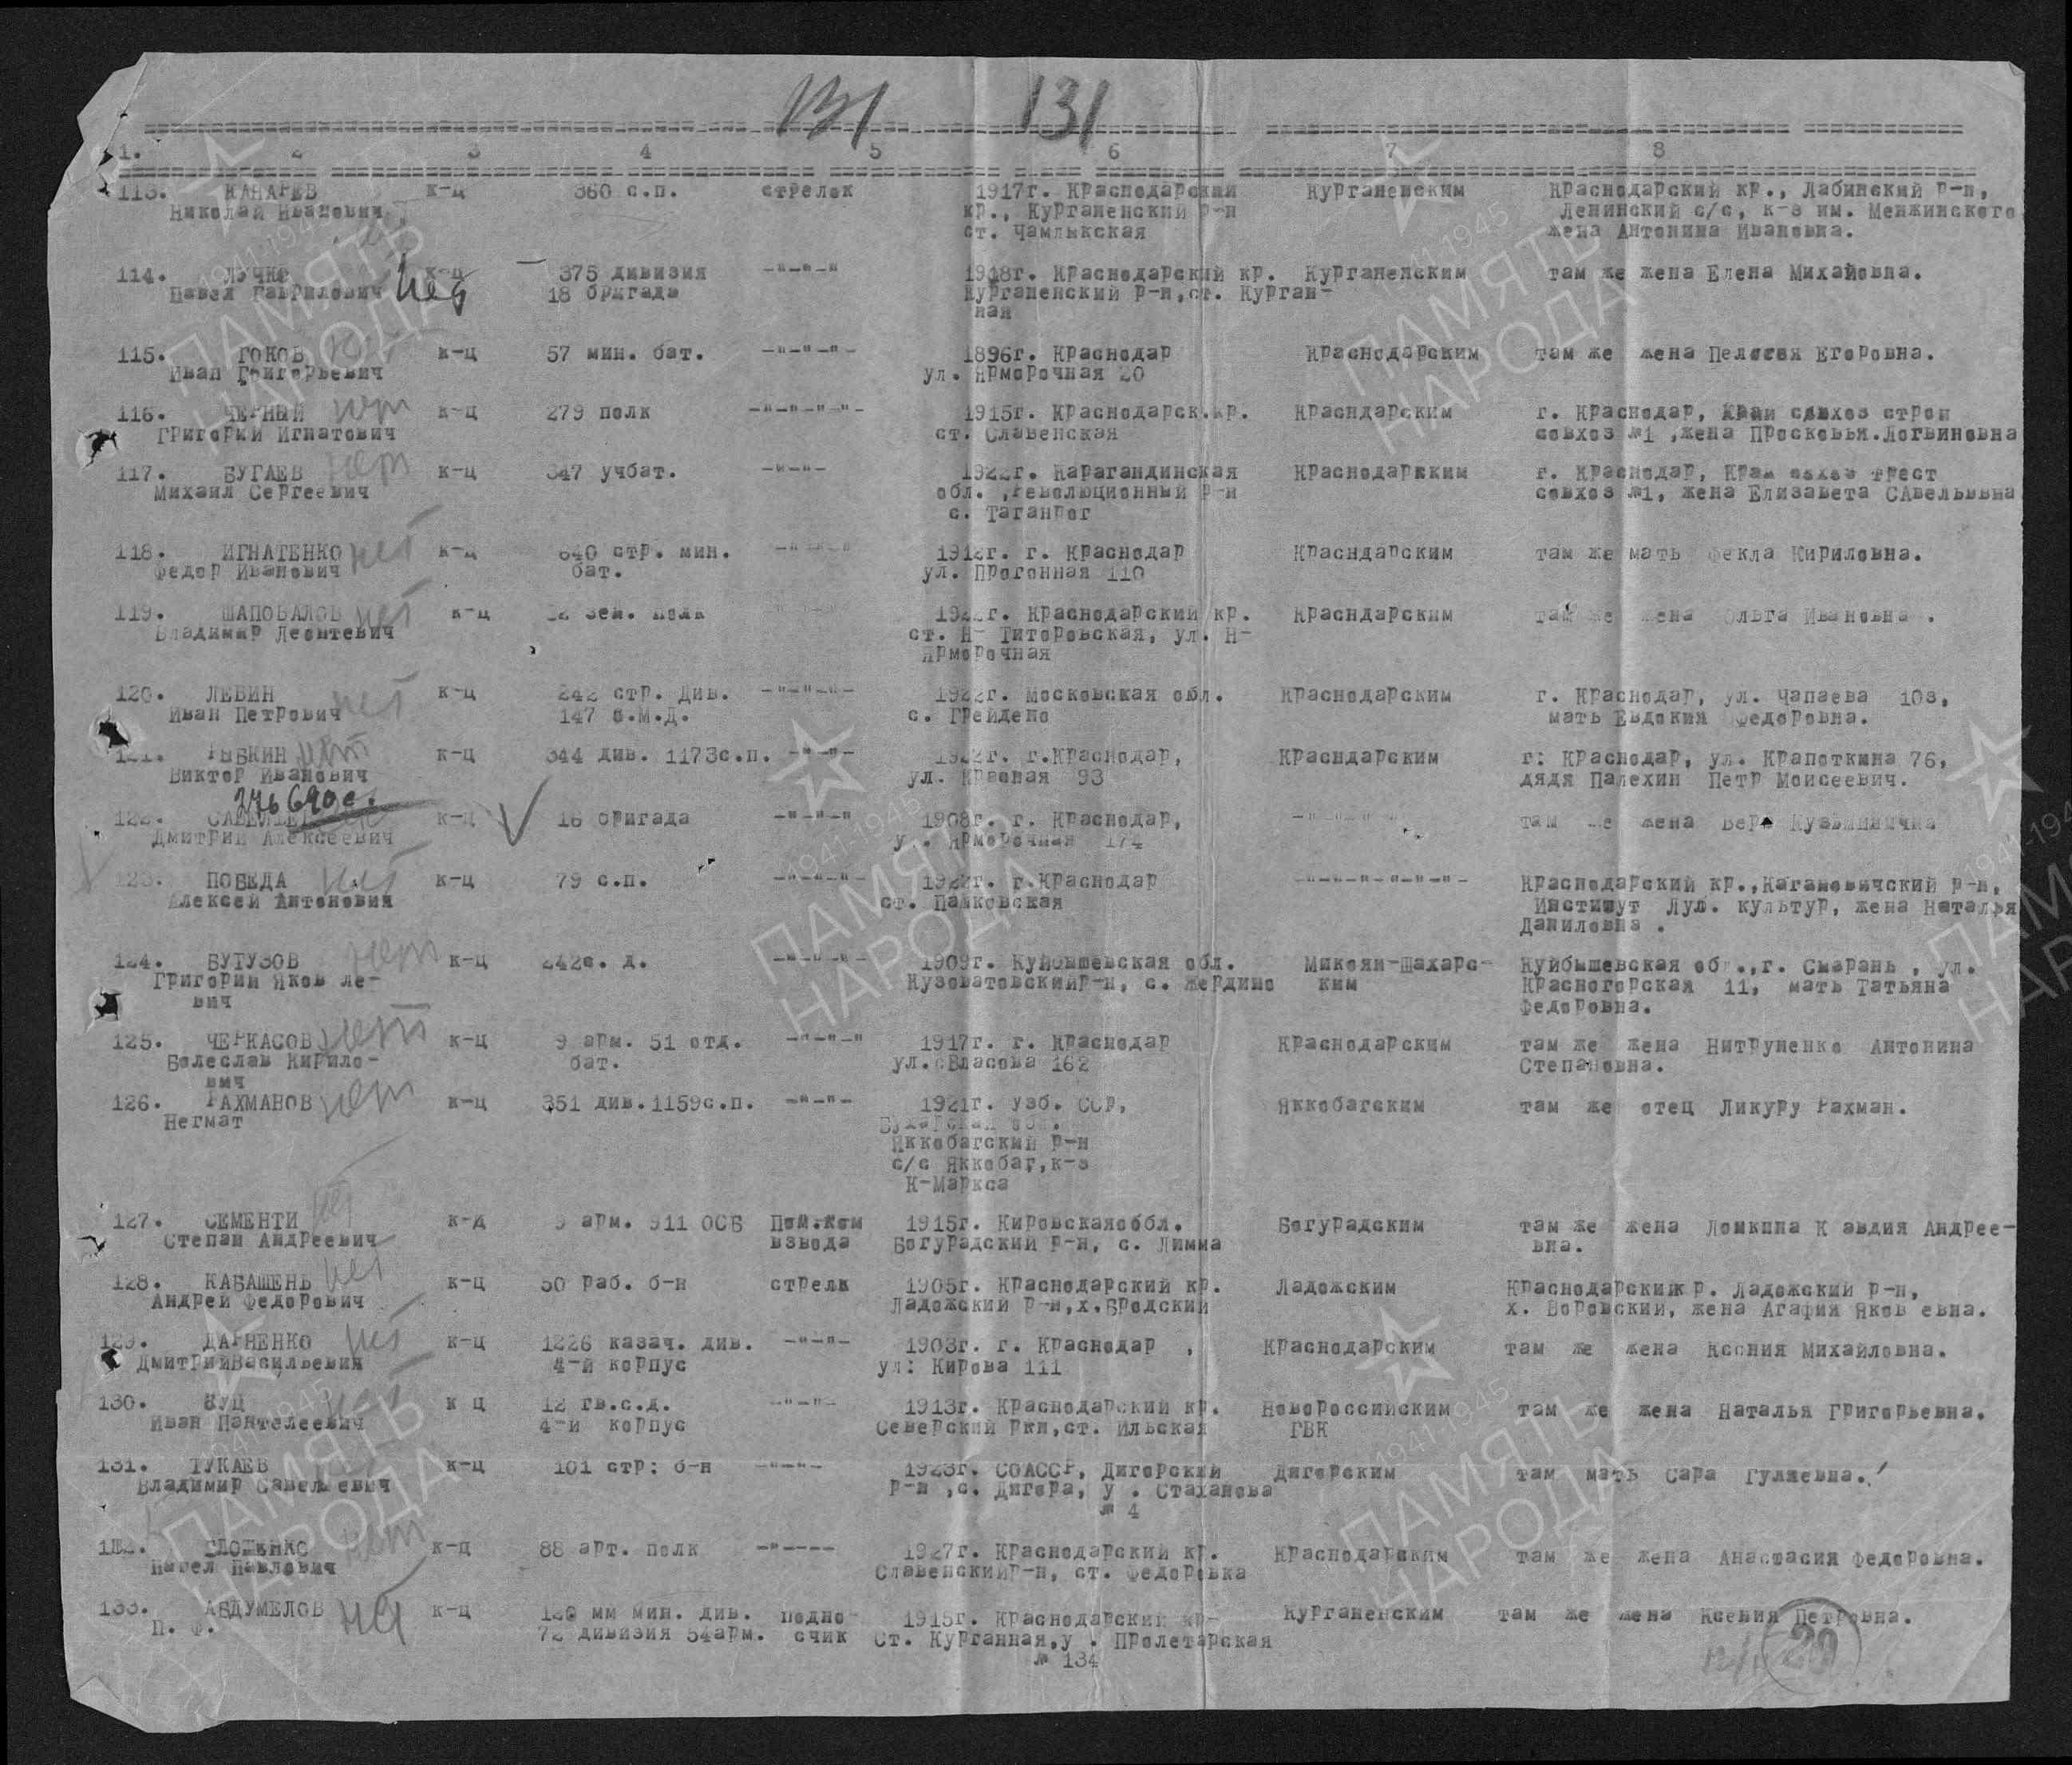 131 131
1. 2 3 4 5 6 7 8
113. КАНАРЕВ к-ц 360 с.п. стрелок 1917г. Краснодарский Курганенским Краснодарский кр., Лабинский р-н,
Николай Иванович кр., Курганенский р-н Ленинский с/с, к-з им. Менжинского
ст. Чамлыкская жена Антонина Ивановна.
114. ЛУЧКО нет к-ц 375 дивизия -"-"-" 1918г. Краснодарский кр. Курганенским там же жена Елена Михайовна.
Павел Гаврилович 18 бригада Курганенский р-н,ст. Курган-
ная
115. ГОКОВ нет к-ц 57 мин. бат. -"-"-"- 1896г. Краснодар Краснодарским там же жена Пелагея Егоровна.
Иван Григорьевич ул. Ярморочная 20
116. ЧЕРНЫЙ нет к-ц 279 полк -"-"-"-"- 1915г. Краснодарск.кр. Красндарским г. Краснодар, Край совхоз строй
Григорий Игнатович ст. Славенская совхоз №1 ,жена Просковья.Логвиновна
117. БУГАЕВ нет к-ц 347 учбат. -"-"- 1922г. Карагандинская Краснодаркким г. Краснодар, Край совхоз трест
Михаил Сергеевич обл. ,Революционный р-н совхоз №1, жена Елизавета САвельевна
с. Таганрог
118. ИГНАТЕНКО нет к-ц 640 стр. мин. 1912г. г. Краснодар Красндарским там же мать Фекла Кириловна.
Федор Иванович бат. ул. Прогонная 110
119. ШАПОВАЛОВ нет к-ц 12 зен. полк 1922г. Краснодарский кр. Красндарским там же жена Ольга Ивановна .
Владимир Леонтевич ст. Н- Титоровская, ул. Н-
Ярморочная
120. ЛЕВИН нет к-ц 242 стр. див. -"-"-"- 1922г. Московская обл. Краснодарским г. Краснодар, ул. Чапаева 103,
Иван Петрович 147 о.м.д. с. Грейдено мать Евдокия Федоровна.
121. РЫБКИН нет к-ц 344 див. 1173с.п. -"-"- 1922г. г.Краснодар, Красндарским г: Краснодар, ул. Крапоткина 76,
Виктор Иванович ул. Красная 93 дядя Палехин Петр Моисеевич.
276690с.
122. к-ц 16 бригада -"-"-" 1908г. г. Краснодар, там же жена Вера Кузьминична
Дмитрий Алексеевич ул. Ярморочная 174
123. ПОБЕДА нет к-ц 79 с.п. -"-"-"- 1922г. г.Краснодар -"-"-"-"-"-"- Краснодарский кр.,Кагановичский р-н,
Алексей Антоновия ст. Пашковская Институт Луб. культур, жена Наталья
Даниловна .
124. БУТУЗОВ нет к-ц 242с. д. -"-"-"- 1909г. Куйбышевская обл. Микоян-Шахарс- Куйбышевская об .,г. Сызрань , ул.
Григорий Яков ле- Кузоватовскийр-н, с. Жердино ким Красногорская 11, мать Татьяна
вич Федоровна.
125. ЧЕРКАСОВ нет к-ц 9 арм. 51 отд. -"-"-" 1917г. г. Краснодар Краснодарским там же жена Нитруненко Антонина
Болеслав Кирило- бат. ул. Власова 162 Степановна.
вич
126. РАХМАНОВ нет к-ц 351 див.1159с.п. -"-"- 1921г. Узб. ССР, Яккобагским там же отец Ликуру Рахман.
Негмат Бухарская обл.
Яккобагский р-н
с/с Яккобаг,к-з
К-Маркса
127. СЕМЕНТИ нет к-ц 9 арм. 911 ОСБ Пом.ком 1915г. Кировскаяобл. Богурадским там же жена Ломкина К авдия Андрее-
Степан Андреевич взвода Богурадский р-н, с. Лимма вна.
128. КАБАШЕНЬ нет к-ц 50 раб. б-н стрелк 1905г. Краснодарский кр. Ладожским Краснодарскийкр. Ладожский р-н,
Андрей Федорович Ладожский р-н,х.Бродский х. Воровский, жена Агафия Яков евна.
129. ДАРВЕНКО нет к-ц 1226 казач. див. -"-"- 1903г. г. Краснодар , Краснодарским там же жена Ксения Михайловна.
ДмитрийВасильевия 4-й корпус ул: Кирова 111
130. КУЦ нет к ц 12 гв.с.д. -"-"- 1913г. Краснодарский кр. Новороссийским там же жена Наталья Григорьевна.
Иван Пантелеевич 4-й корпус Северский ркн,ст. Ильская ГВК
131. ТУКАЕВ к-ц 101 стр: б-н -"-"- 1923г. СОАССР, Дигорский Дигорским там мать Сара Гуляевна.
Владимир Савельевич р-н ,с. Дигора, у . Стаханова
№ 4
132. нет к-ц 88 арт. полк -"---- 1927г. Краснодарский кр. Краснодарским там же жена Анастасия Федоровна.
Павел Павлович Славенскийр-н, ст. Федоровка
133. АБДУМЕЛОВ нет к-ц 120 мм мин. див. подно- 1915г. Краснодарский кр- Курганенским там же жена Ксения Петровна.
П. Ф. 72 дивизия 54арм. счик Ст. Курганная,у . Пролетарская
№ 134
20
ПАМЯТЬ НАРОДА 1941-1945